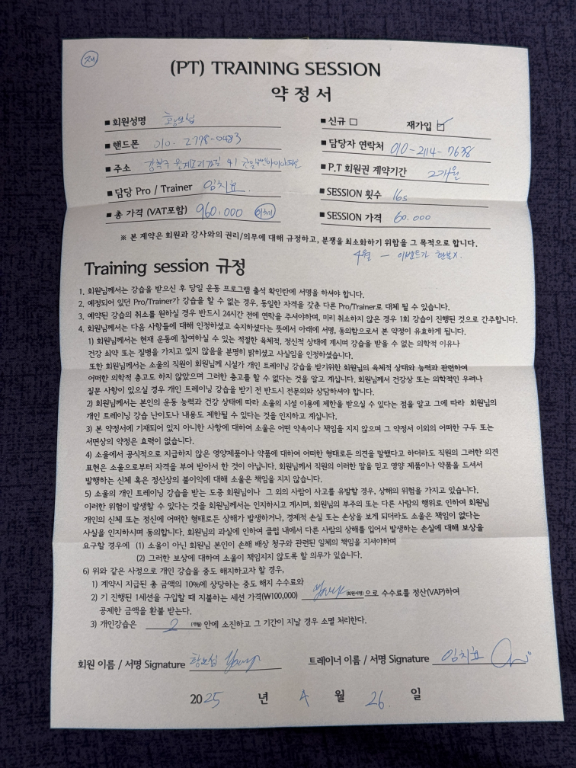 (PT) TRAINING SESSION
약정서
■ 회원성명
■ 신규 □ 재가입 ☑
■ 핸드폰 010-2778-0493
■ 담당자 연락처 010-2114-7638
■ 주소
■ P.T 회원권 계약기간 2개월
■ 담당 Pro / Trainer 임치효
■ SESSION 횟수 16s
■ 총 가격 (VAT포함) 960.000
■ SESSION 가격 60.000
※ 본 계약은 회원과 강사와의 권리/의무에 대해 규정하고, 분쟁을 최소화하기 위함을 그 목적으로 합니다.
4월 -
Training session 규정
1. 회원님께서는 강습을 받으신 후 당일 운동 프로그램 출석 확인란에 서명을 하셔야 합니다.
2. 예정되어 있던 Pro/Trainer가 강습을 할 수 없는 경우, 동일한 자격을 갖춘 다른 Pro/Trainer로 대체 될 수 있습니다.
3. 예약된 강습의 취소를 원하실 경우 반드시 24시간 전에 연락을 주셔야하며, 미리 취소하지 않은 경우 1회 강습이 진행된 것으로 간주합니다.
4. 회원님께서는 다음 사항들에 대해 인정하셨고 숙지하셨다는 뜻에서 아래에 서명, 동의함으로서 본 약정이 유효하게 됩니다.
1) 회원님께서는 현재 운동에 참여하실 수 있는 적절한 육체적, 정신적 상태에 계시며 강습을 받을 수 없는 의학적 이유나
건강 쇠약 또는 질병을 가지고 있지 않음을 분명히 밝히셨고 사실임을 인정하셨습니다.
또한 회원님께서는 소울의 직원이 회원님께 시설가 개인 트레이닝 강습을 받기위한 회원님의 육체적 상태와 능력과 관련하여
어떠한 의학적 충고도 하지 않았으며 그러한 충고를 할 수 없다는 것을 알고 계십니다. 회원님께서 건강상 또는 의학적인 우려나
질문 사항이 있으실 경우 개인 트레이닝 강습을 받기 전 반드시 전문의와 상담하셔야 합니다.
2) 회원님께서는 본인의 운동 능력과 건강 상태에 따라 소울의 시설 이용에 제한을 받으실 수 있다는 점을 알고 그에 따라 회원님의
개인 트레이닝 강습 난이도나 내용도 제한될 수 있다는 것을 인지하고 계십니다.
3) 본 약정서에 기재되어 있지 아니한 사항에 대하여 소울은 어떤 약속이나 책임을 지지 않으며 그 약정서 이외의 어떠한 구두 또는
서면상의 약정은 효력이 없습니다.
4) 소울에서 공식적으로 지급하지 않은 영양제품이나 약품에 대하여 어떠한 형태로든 의견을 말했다고 하더라도 직원의 그러한 의견
표현은 소울으로부터 자격을 부여 받아서 한 것이 아닙니다. 회원님께서 직원의 이러한 말을 믿고 영양 제품이나 약품을 드셔서
발행하는 신체 혹은 정신상의 불이익에 대해 소울은 책임을 지지 않습니다.
5) 소울의 개인 트레이닝 강습을 받는 도중 회원님이나 그 외의 사람이 사고를 유발할 경우, 상해의 위험을 가지고 있습니다.
이러한 위험이 발생할 수 있다는 것을 회원님께서는 인지하시고 계시며, 회원님의 부주의 또는 다른 사람의 행위로 인하여 회원님
개인의 신체 또는 정신에 어떠한 형태로든 상해가 발생하거나, 경제적 손실 또는 손상을 보게 되더라도 소울은 책임이 없다는
사실을 인지하시며 동의합니다. 회원님의 과실에 인하여 클럽 내에서 다른 사람의 상해를 입어서 발생하는 손실에 대해 보상을
요구할 경우에 (1) 소울이 아닌 회원님 본인이 손해 배상 청구와 관련된 일체의 책임을 지셔야하며
(2) 그러한 보상에 대하여 소울이 책임지지 않도록 할 의무가 있습니다.
6) 위와 같은 사정으로 개인 강습을 중도 해지하고자 할 경우,
1) 계약시 지급된 총 금액의 10%에 상당하는 중도 해지 수수료와
2) 기 진행된 1세션을 구입할 때 지불하는 세션 가격(₩100,000) 으로 수수료를 정산(VAP)하여
공제한 금액을 환불 받는다.
3) 개인강습은 2 안에 소진하고 그 기간이 지날 경우 소멸 처리한다.
회원 이름 / 서명 Signature
트레이너 이름 / 서명 Signature 임치효
2025 년 4 월 26 일